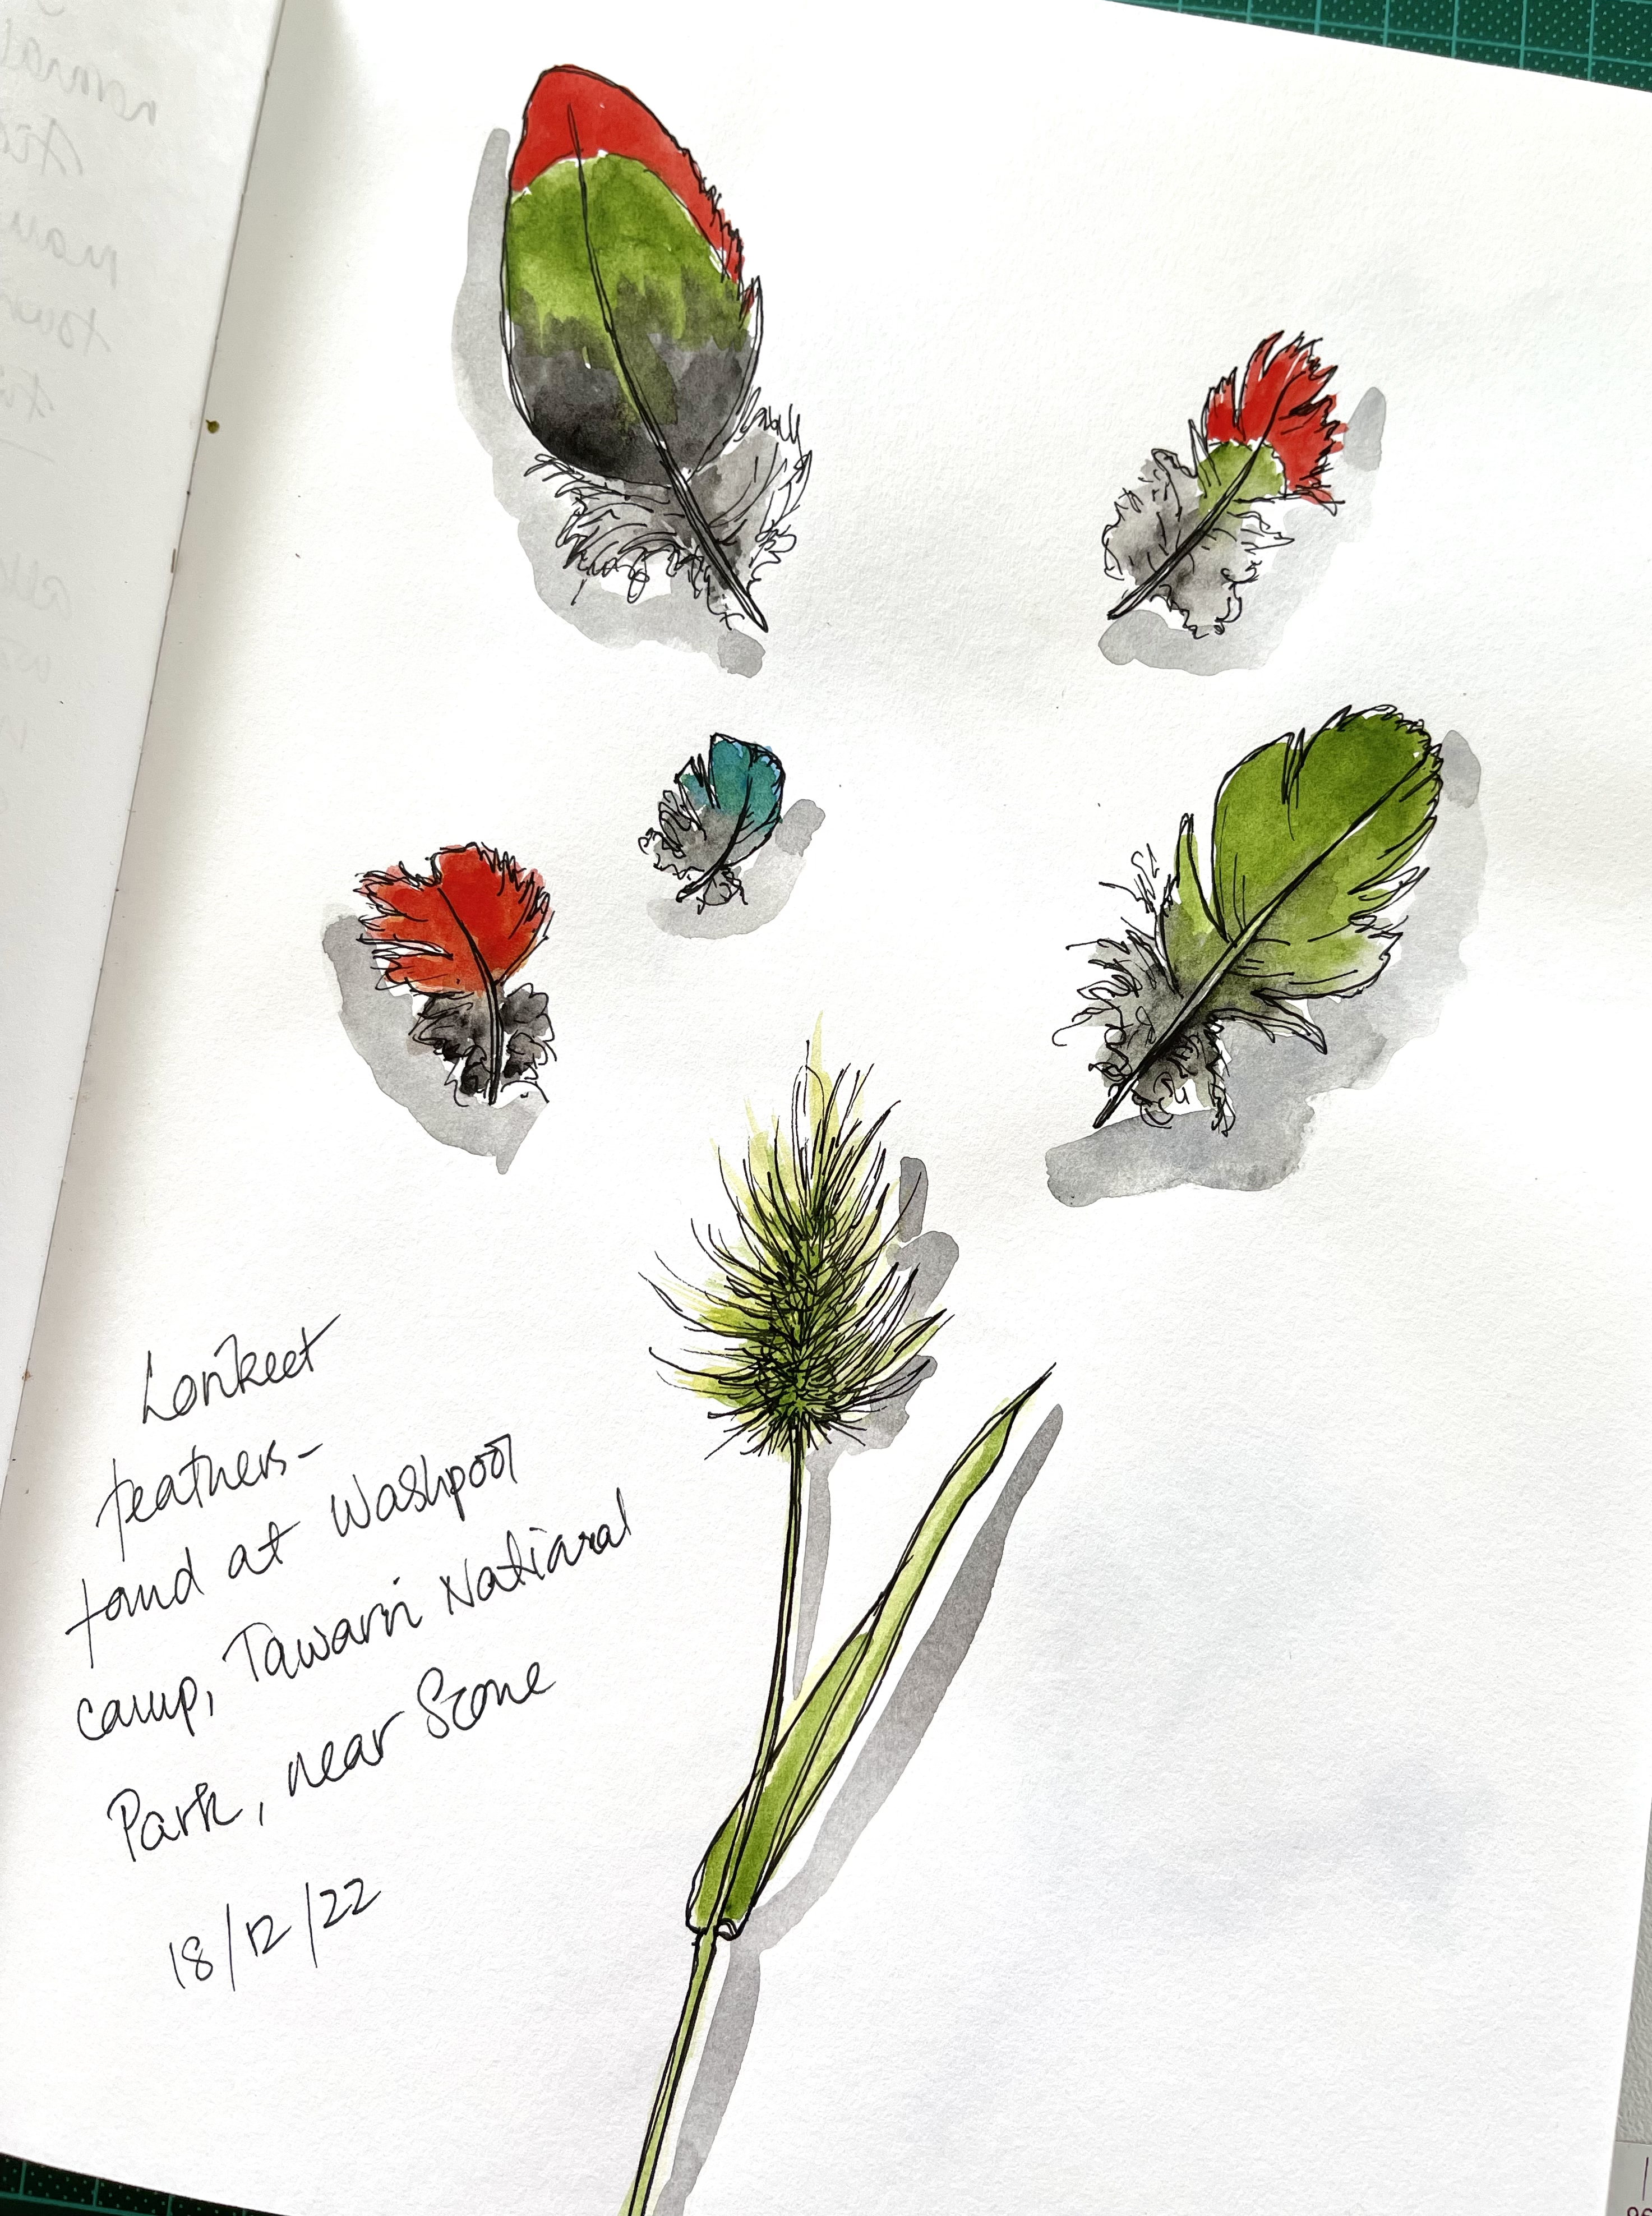 Lorikeet
feathers-
found at Washpool
camp, Tawarri National
Park, near Scone
18/12/22